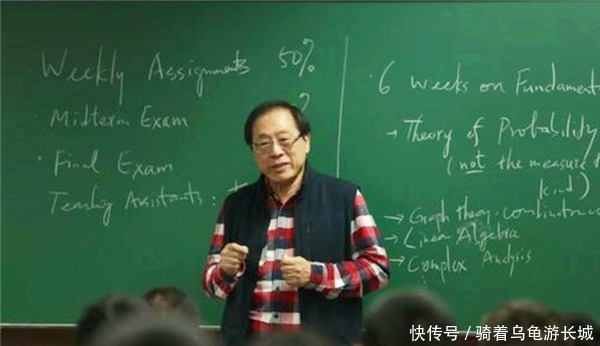 Weekly Assignments 50%
· Midterm Exam ?
· Final Exam
Teaching Assistants :
· 6 Weeks on
→ Theory of Probability
(not the measure
kind)
→ Graph theory,
→ Linear Algebra
→ Complex Analysis
快传号 / 骑着乌龟游长城